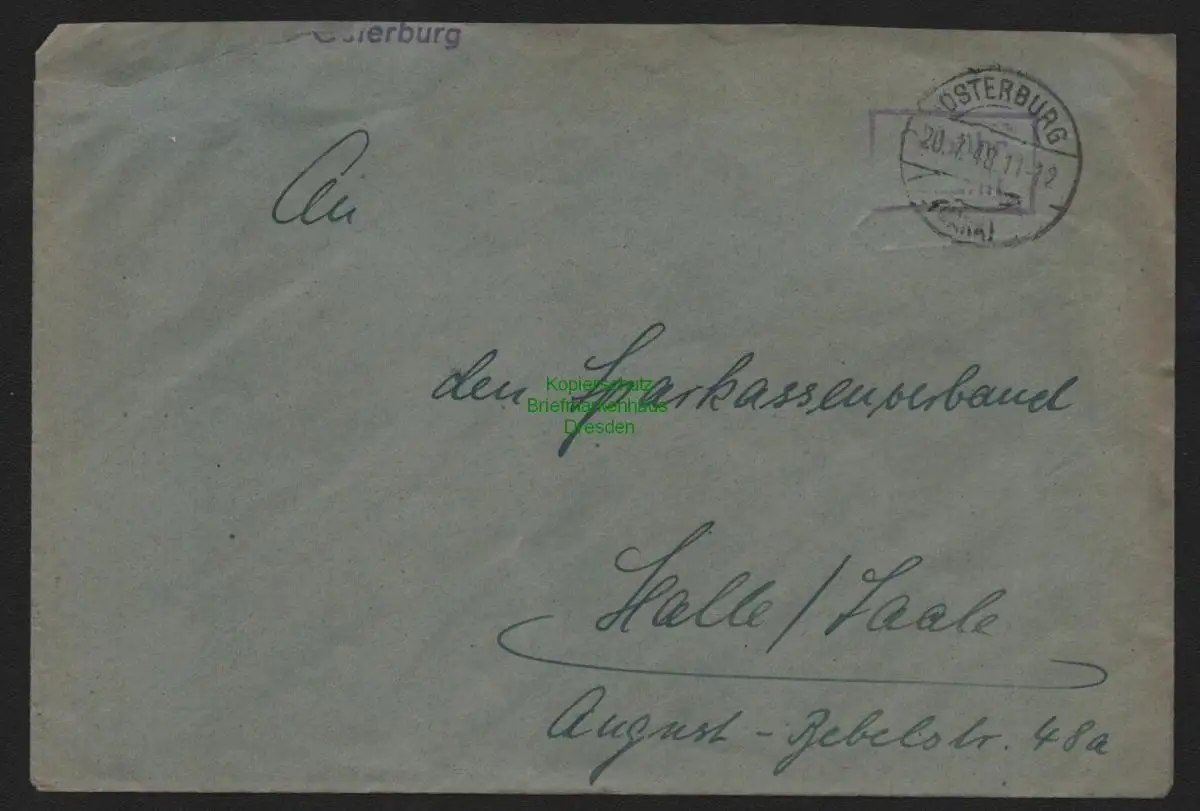 Osterburg
OSTERBURG
20. 7. 48 11-12
An
den Sparkassenverband
Kopierschutz
Briefmarkenhaus
Dresden
Halle/Saale
August-Bebelstr. 48a